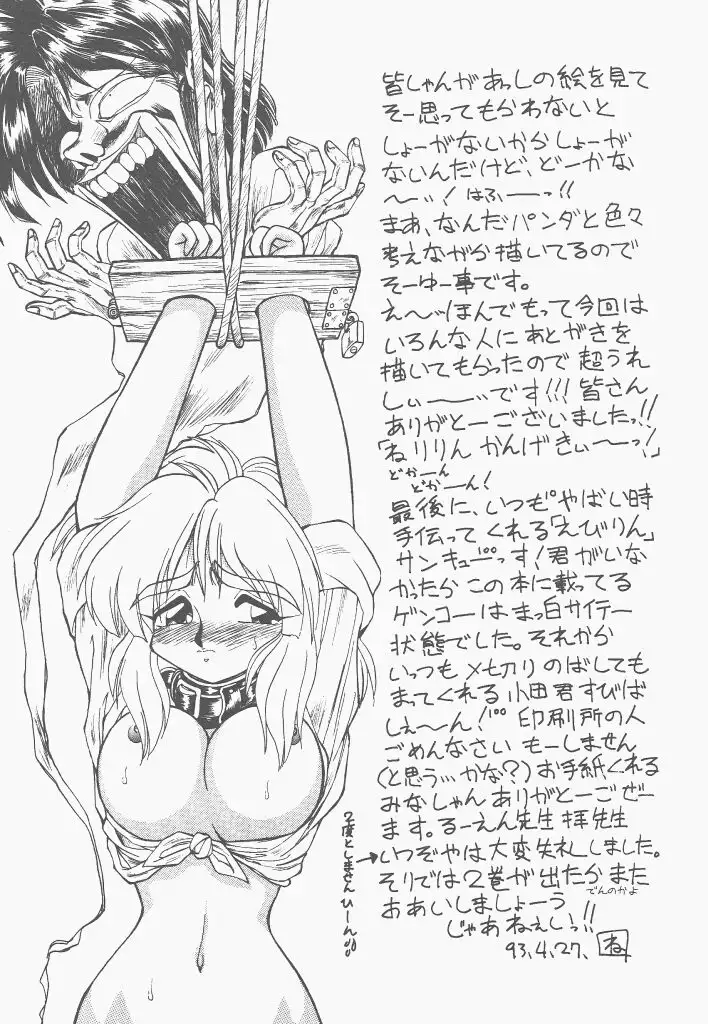 皆しゃんがあっしの絵を見て
そー思ってもらわないと
しょーがないからしょーが
ないんだけど、どーかな
〜ッ！はふーーっ!!
まあ、なんだパンダと色々
考えながら描いてるので
そーゆー事です。
え〜ッほんでもって今回は
いろんな人にあとがきを
描いてもらったので超うれ
しぃ〜〜〜です!!!皆さん
ありがとーございましたっ!!
「ねりりん かんげきぃ〜ーっ！」
どかーん
どかーん！
最後に、いつもやばい時
手伝ってくれる「えびりん」
サンキューっす！君がいな
かったらこの本に載ってる
ゲンコーはまっ白サイテー
状態でした。それから
いっつも〆切りのばしても
まってくれる小田君すびば
しぇ〜ん！印刷所の人
ごめんなさい もーしません
（と思う…かな？）お手紙くれる
みなしゃんありがとーごぜー
ます。るーえん先生 拝先生
いつぞやは大変失礼しました。
そりでは2巻が出たらまた
でんのかよ
おあいしましょーう
じゃあねぇぃっ!!
93.4.27、ね
2度としませんひーん